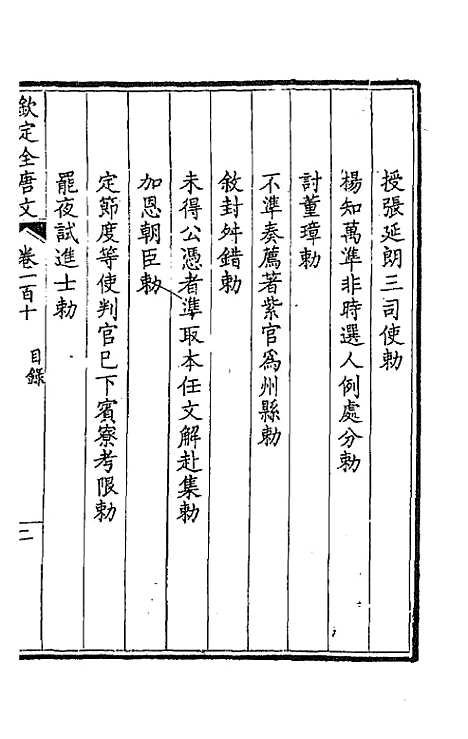 授張延朗三司使勅
楊知萬準非時選人例處分勅
討董璋勅
不準奏薦著紫官爲州縣勅
敘封舛錯勅
未得公憑者準取本任文解赴集勅
加恩朝臣勅
定節度等使判官巳下賓寮考限勅
罷夜試進士勅
欽定全唐文 卷一百十 目錄 二